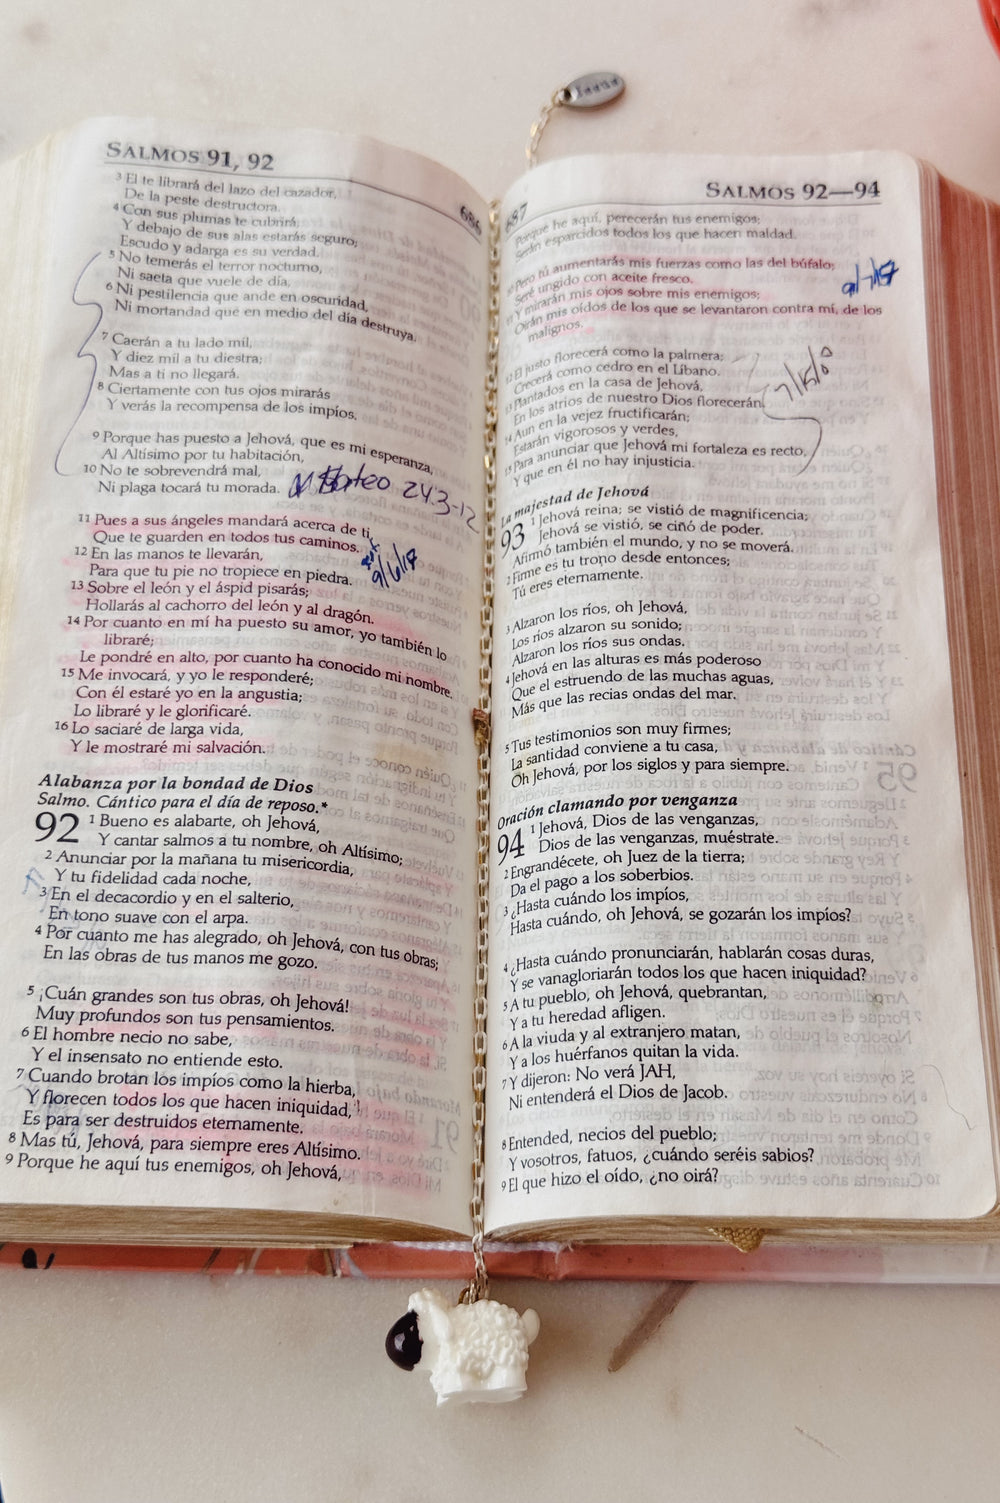 SALMOS 91, 92
686
3 El te librará del lazo del cazador,
De la peste destructora.
4 Con sus plumas te cubrirá,
Y debajo de sus alas estarás seguro;
Escudo y adarga es su verdad.
5 No temerás el terror nocturno,
Ni saeta que vuele de día,
6 Ni pestilencia que ande en oscuridad,
Ni mortandad que en medio del día destruya.
7 Caerán a tu lado mil,
Y diez mil a tu diestra;
Mas a ti no llegará.
8 Ciertamente con tus ojos mirarás
Y verás la recompensa de los impíos.
9 Porque has puesto a Jehová, que es mi esperanza,
Al Altísimo por tu habitación,
10 No te sobrevendrá mal,
Ni plaga tocará tu morada.
Mateo 24:3-12
11 Pues a sus ángeles mandará acerca de ti,
Que te guarden en todos tus caminos.
12 En las manos te llevarán,
9/6/17
Para que tu pie no tropiece en piedra.
13 Sobre el león y el áspid pisarás;
Hollarás al cachorro del león y al dragón.
14 Por cuanto en mí ha puesto su amor, yo también lo
libraré;
Le pondré en alto, por cuanto ha conocido mi nombre.
15 Me invocará, y yo le responderé;
Con él estaré yo en la angustia;
Lo libraré y le glorificaré.
16 Lo saciaré de larga vida,
Y le mostraré mi salvación.
Alabanza por la bondad de Dios
Salmo. Cántico para el día de reposo.*
92 1 Bueno es alabarte, oh Jehová,
Y cantar salmos a tu nombre, oh Altísimo;
2 Anunciar por la mañana tu misericordia,
Y tu fidelidad cada noche,
3 En el decacordio y en el salterio,
En tono suave con el arpa.
4 Por cuanto me has alegrado, oh Jehová, con tus obras;
En las obras de tus manos me gozo.
5 ¡Cuán grandes son tus obras, oh Jehová!
Muy profundos son tus pensamientos.
6 El hombre necio no sabe,
Y el insensato no entiende esto.
7 Cuando brotan los impíos como la hierba,
Y florecen todos los que hacen iniquidad,
Es para ser destruidos eternamente.
8 Mas tú, Jehová, para siempre eres Altísimo.
9 Porque he aquí tus enemigos, oh Jehová,
687
SALMOS 92—94
Porque he aquí, perecerán tus enemigos;
Serán esparcidos todos los que hacen maldad.
10 Pero tú aumentarás mis fuerzas como las del búfalo;
Seré ungido con aceite fresco.
11 Y mirarán mis ojos sobre mis enemigos;
Oirán mis oídos de los que se levantaron contra mí, de los
malignos.
12 El justo florecerá como la palmera;
Crecerá como cedro en el Líbano.
13 Plantados en la casa de Jehová,
En los atrios de nuestro Dios florecerán.
14 Aun en la vejez fructificarán;
Estarán vigorosos y verdes,
15 Para anunciar que Jehová mi fortaleza es recto,
Y que en él no hay injusticia.
La majestad de Jehová
93 1 Jehová reina; se vistió de magnificencia;
Jehová se vistió, se ciñó de poder.
Afirmó también el mundo, y no se moverá.
2 Firme es tu trono desde entonces;
Tú eres eternamente.
3 Alzaron los ríos, oh Jehová,
Los ríos alzaron su sonido;
Alzaron los ríos sus ondas.
4 Jehová en las alturas es más poderoso
Que el estruendo de las muchas aguas,
Más que las recias ondas del mar.
5 Tus testimonios son muy firmes;
La santidad conviene a tu casa,
Oh Jehová, por los siglos y para siempre.
Oración clamando por venganza
94 1 Jehová, Dios de las venganzas,
Dios de las venganzas, muéstrate.
2 Engrandécete, oh Juez de la tierra;
Da el pago a los soberbios.
3 ¿Hasta cuándo los impíos,
Hasta cuándo, oh Jehová, se gozarán los impíos?
4 ¿Hasta cuándo pronunciarán, hablarán cosas duras,
Y se vanagloriarán todos los que hacen iniquidad?
5 A tu pueblo, oh Jehová, quebrantan,
Y a tu heredad afligen.
6 A la viuda y al extranjero matan,
Y a los huérfanos quitan la vida.
7 Y dijeron: No verá JAH,
Ni entenderá el Dios de Jacob.
8 Entended, necios del pueblo;
Y vosotros, fatuos, ¿cuándo seréis sabios?
9 El que hizo el oído, ¿no oirá?